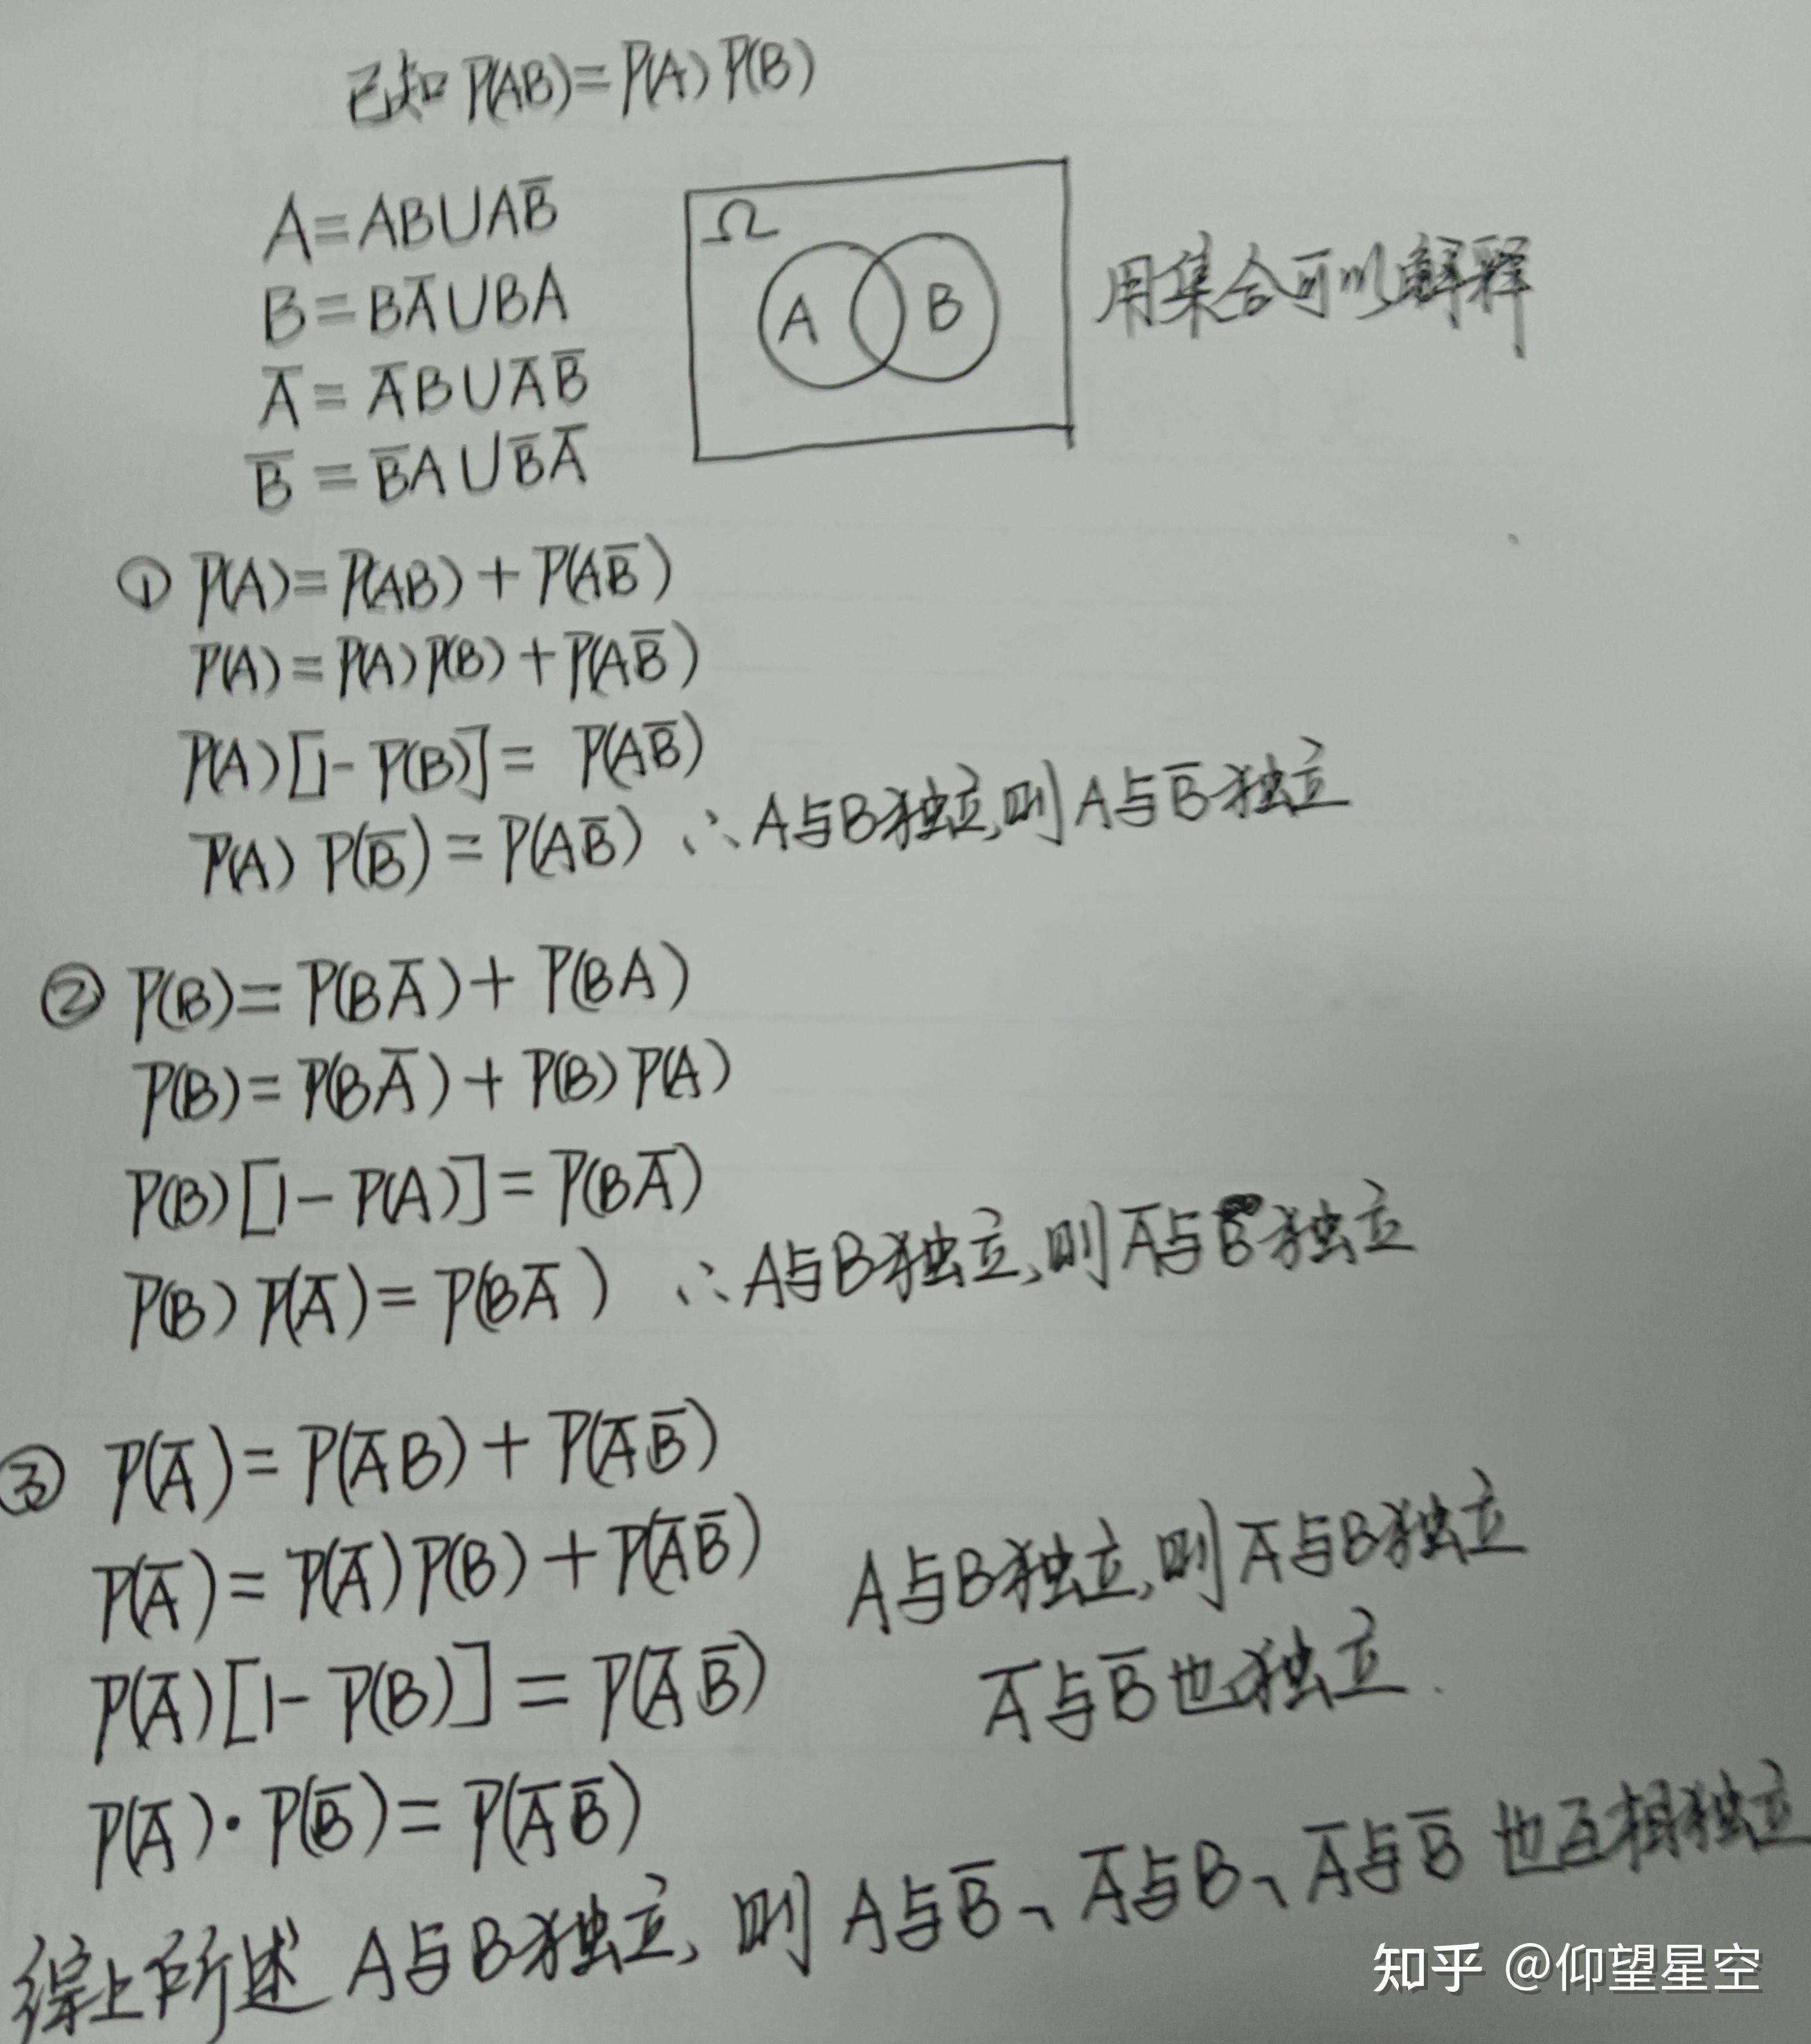 已知 P(AB)=P(A)P(B)
A=AB∪AB̅
B=BA̅∪BA
A̅=A̅B∪A̅B̅
B̅=B̅A∪B̅A̅
Ω
A B
用集合可以解释
① P(A)=P(AB)+P(AB̅)
P(A)=P(A)P(B)+P(AB̅)
P(A)[1-P(B)]=P(AB̅)
P(A)P(B̅)=P(AB̅) ∴A与B独立,则A与B̅独立
② P(B)=P(BA̅)+P(BA)
P(B)=P(BA̅)+P(B)P(A)
P(B)[1-P(A)]=P(BA̅)
P(B)P(A̅)=P(BA̅) ∴A与B独立,则A̅与B独立
③ P(A̅)=P(A̅B)+P(A̅B̅)
P(A̅)=P(A̅)P(B)+P(A̅B̅)
P(A̅)[1-P(B)]=P(A̅B̅)
P(A̅)·P(B̅)=P(A̅B̅)
A与B独立,则A̅与B独立
A̅与B̅也独立.
综上所述 A与B独立, 则 A与B̅、A̅与B、A̅与B̅ 也互相独立
知乎 @仰望星空